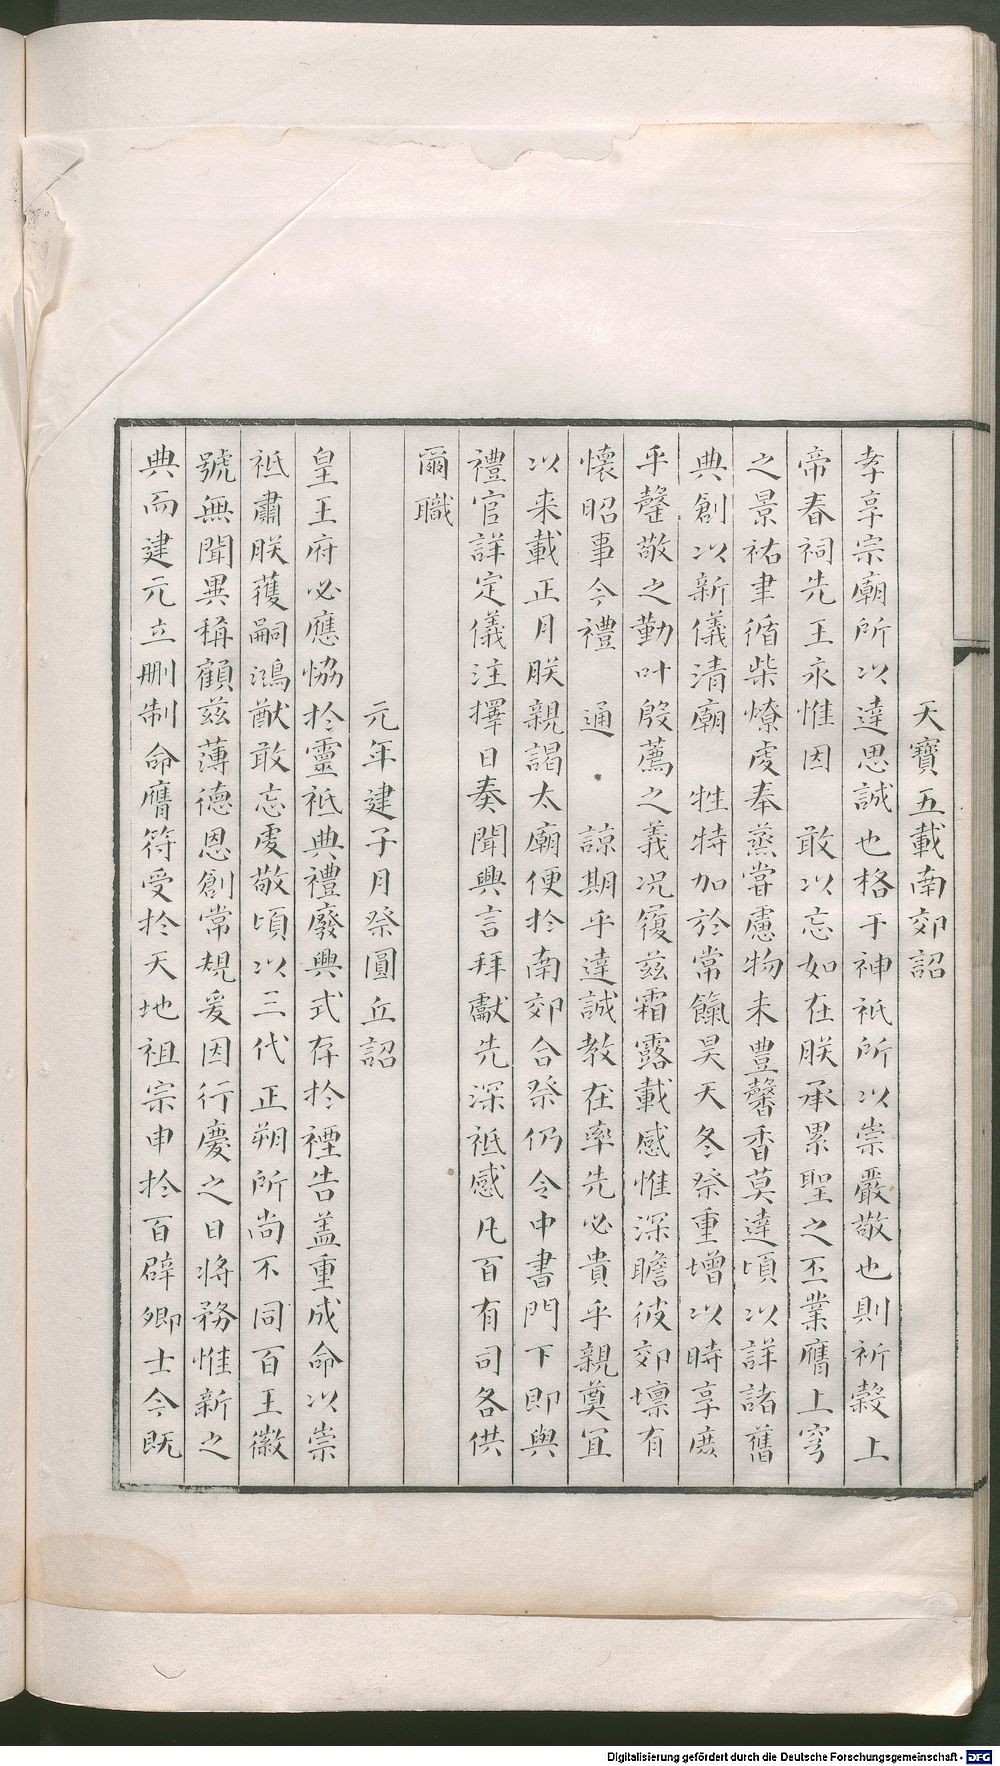 天寶五載南郊詔
孝享宗廟所以達思誠也格于神祇所以崇嚴敬也則祈穀上
帝春祠先王永惟因　敢以忘如在朕承累聖之丕業膺上穹
之景祐聿循柴燎虔奉蒸嘗慮物未豐馨香莫達頃以詳諸舊
典創以新儀清廟　牲特加於常餼昊天冬祭重增以時享庶
乎罄敬之勤叶殷薦之義況履茲霜露載感惟深瞻彼郊壇有
懷昭事今禮　通　諒期乎達誠教在率先必貴乎親奠宜
以来載正月朕親謁太廟便扵南郊合祭仍令中書門下即與
禮官詳定儀注擇日奏聞興言拜獻先深祗感凡百有司各供
爾職
元年建子月祭圓丘詔
皇王府必應恊扵靈祗典禮廢興式存扵禋告盖重成命以崇
祗肅朕䕶嗣鴻猷敢忘虔敬頃以三代正朔所尚不同百王徽
號無聞異稱顧茲薄德恩創常規爰因行慶之日將務惟新之
典而建元立刪制命膺符受扵天地祖宗申扵百辟卿士今既
Digitalisierung gefördert durch die Deutsche Forschungsgemeinschaft - DFG